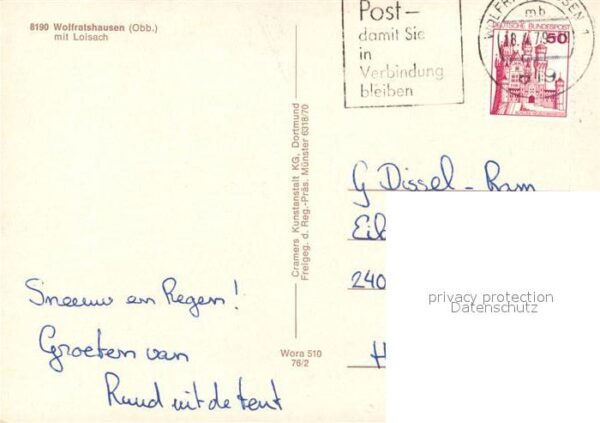 8190 Wolfratshausen (Obb.)
mit Loisach
Post–
damit Sie
in
Verbindung
bleiben
mb
18.4.79
819
DEUTSCHE BUNDESPOST
50
Cramers Kunstanstalt KG, Dortmund
Freigeg. d. Reg.-Präs. Münster 6318/70
G Dissel-Ram
240
H
privacy protection
Datenschutz
Sneeuw en Regen!
Groeten van
Ruud uit de tent
Wora 510
76/2